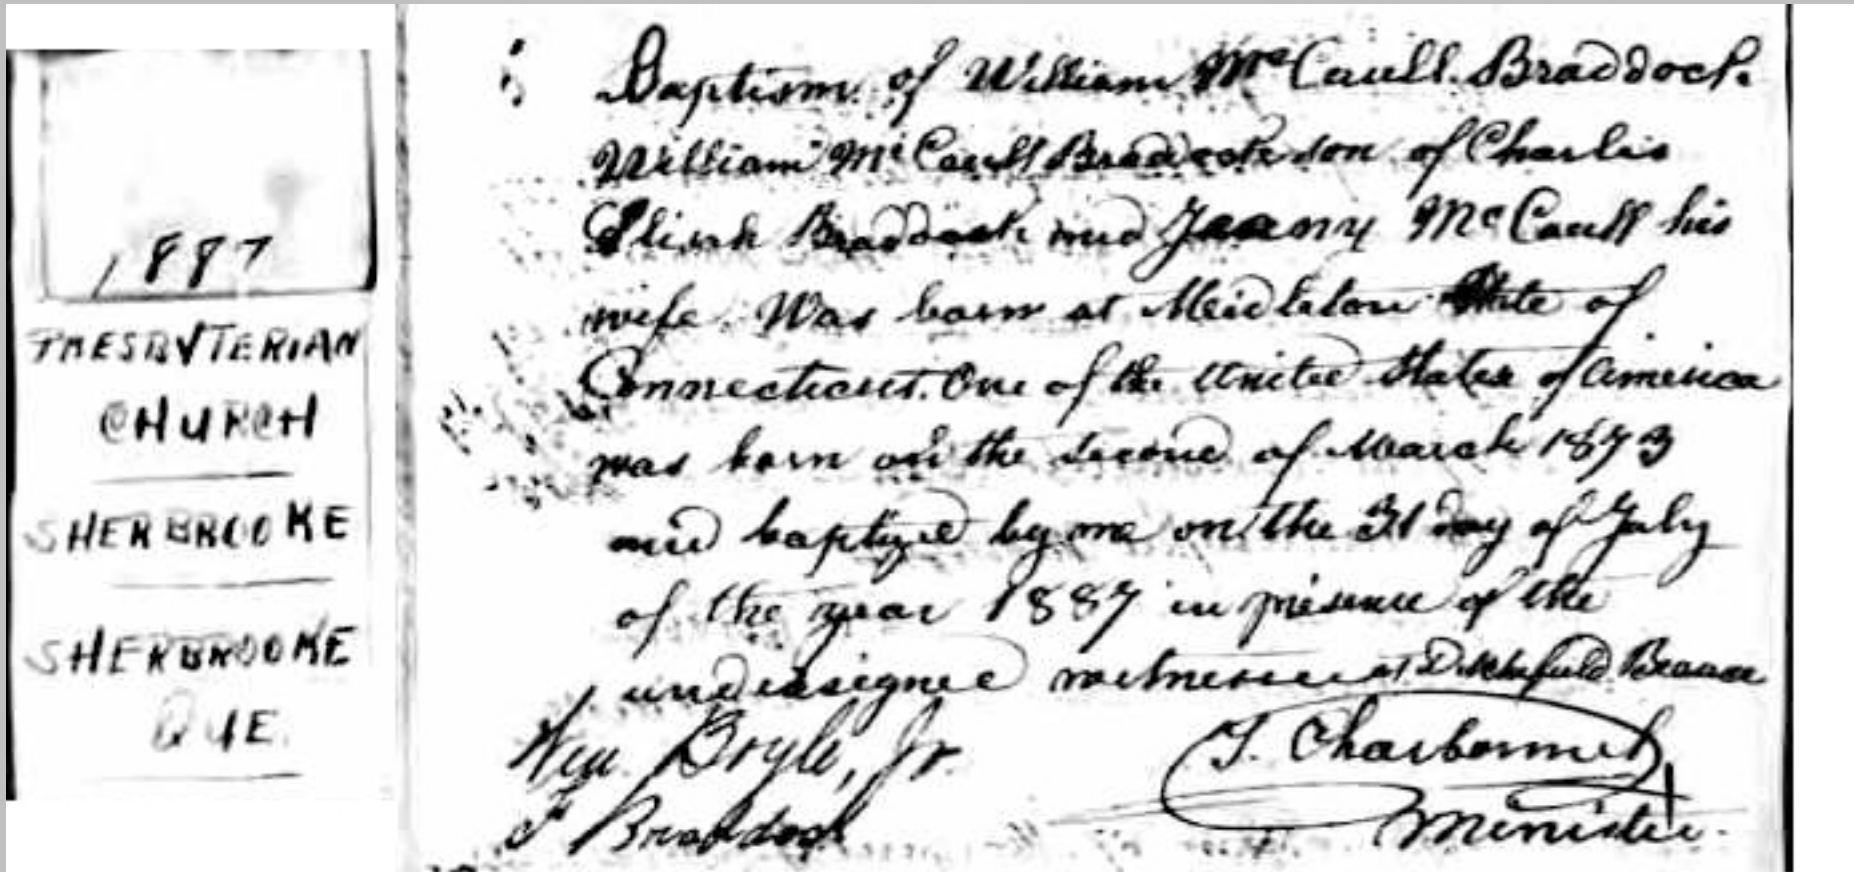 1887
PRESBYTERIAN
CHURCH
SHERBROOKE
SHERBROOKE
QUE.
Baptism of William Mc Caull Braddock
William Mc Caull Braddock son of Charlis
Braddock and Jeanny Mc Caull his
wife. Was born at Meidleton State of
Connecticut. One of the United States of America
was born on the second of March 1873
and baptized by me on the 31 day of July
of the year 1887 in presence of the
undersigned witnesses at Ditchfield Beauce
Wm. Boyle, Jr.
J. Charbonnel
F Braddock
Minister.